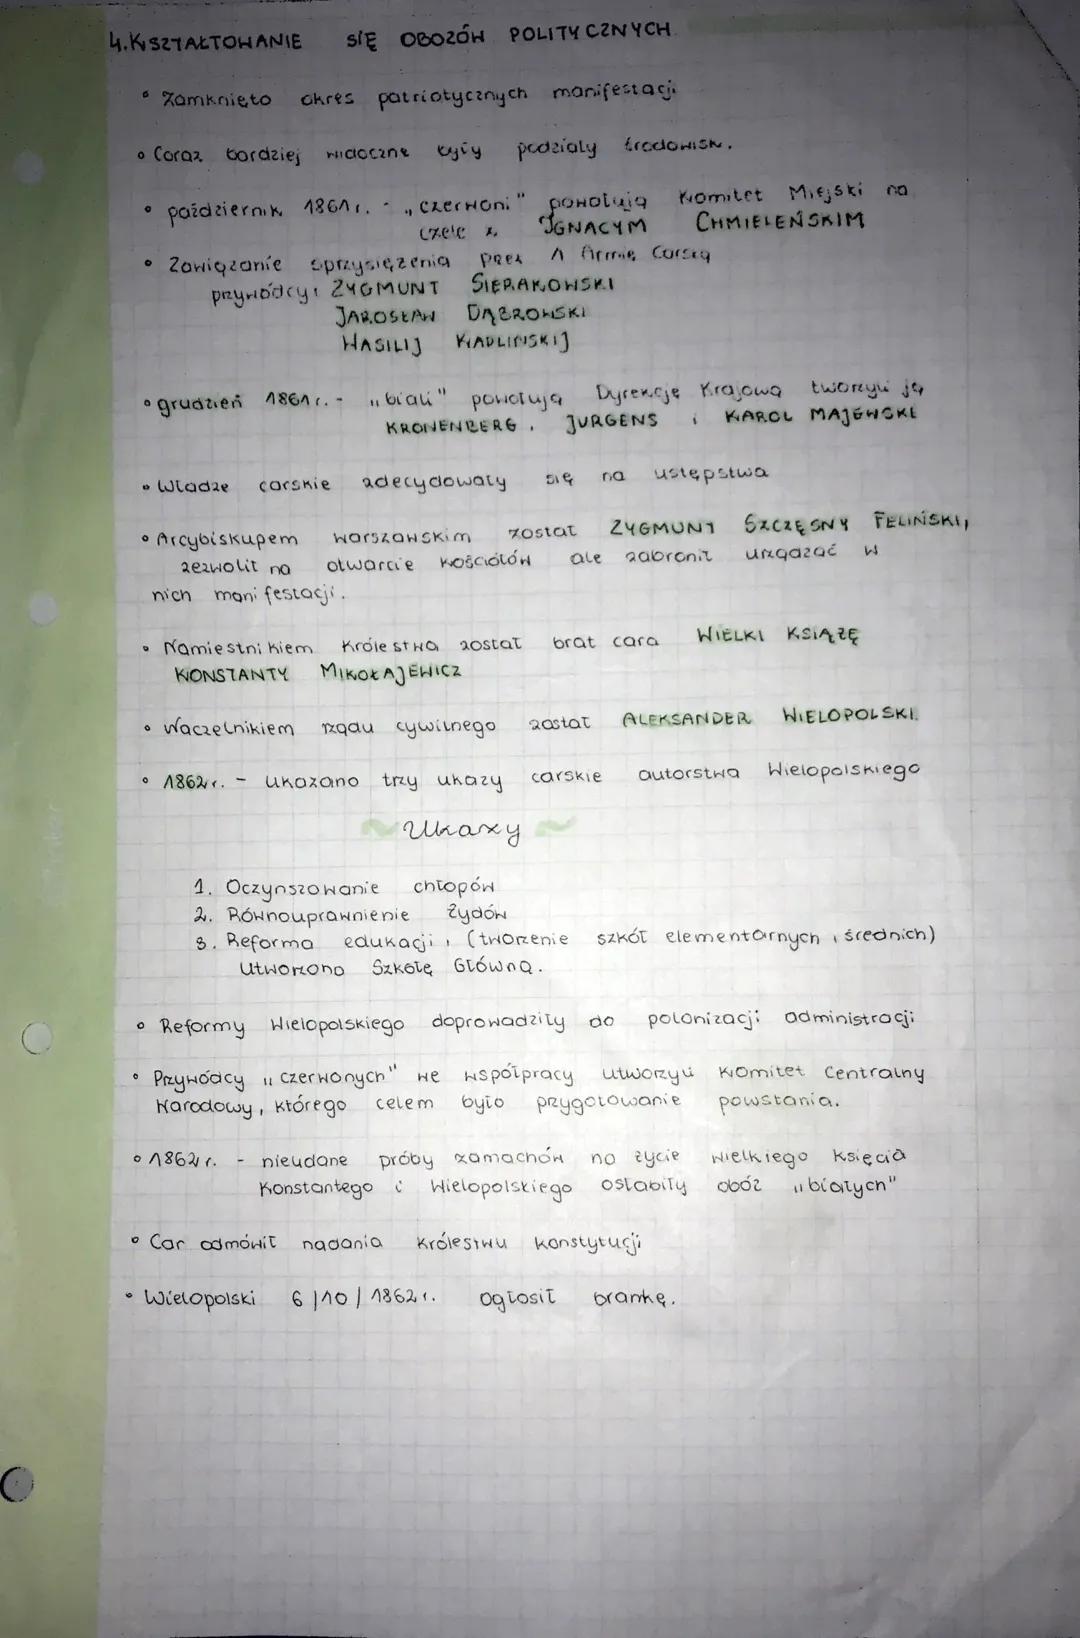 4. KSZTAŁTOWANIE SIĘ OBOZÓW POLITYCZNYCH
• Zamknięto okres patriotycznych manifestacji
• Coraz bardziej widoczne były podziały środowisk.
• październik 1861r. - „czerwoni" powołują Komitet Miejski na
czele z IGNACYM CHMIELEŃSKIM
• Zawiązanie sprzysiężenia przez 1 Armię Carską
przywódcy: ZYGMUNT SIERAKOWSKI
JAROSŁAW DĄBROWSKI
WASILIJ KAPLIŃSKIJ
• grudzień 1861r. - „biali" powołują Dyrekcję Krajową tworzyli ją
KRONENBERG, JURGENS i KAROL MAJEWSKI
• Władze carskie zdecydowały się na ustępstwa
• Arcybiskupem warszawskim został ZYGMUNT SZCZĘSNY FELIŃSKI,
zezwolił na otwarcie kościołów ale zabronił urządzać w
nich manifestacji.
• Namiestnikiem Królestwa został brat cara WIELKI KSIĄŻĘ
KONSTANTY MIKOŁAJEWICZ
• Naczelnikiem rządu cywilnego został ALEKSANDER WIELOPOLSKI.
• 1862r. - ukazano trzy ukazy carskie autorstwa Wielopolskiego
~ Ukazy ~
1. Oczynszowanie chłopów
2. Równouprawnienie Żydów
3. Reforma edukacji, (tworzenie szkół elementarnych i średnich)
Utworzono Szkołę Główną.
• Reformy Wielopolskiego doprowadziły do polonizacji administracji
• Przywódcy „czerwonych" we współpracy utworzyli Komitet Centralny
Narodowy, którego celem było przygotowanie powstania.
• 1862r. - nieudane próby zamachów na życie wielkiego Księcia
Konstantego i Wielopolskiego osłabiły obóz „białych"
• Car odmówił nadania Królestwu konstytucji
• Wielopolski 6/10/1862r. ogłosił brankę.